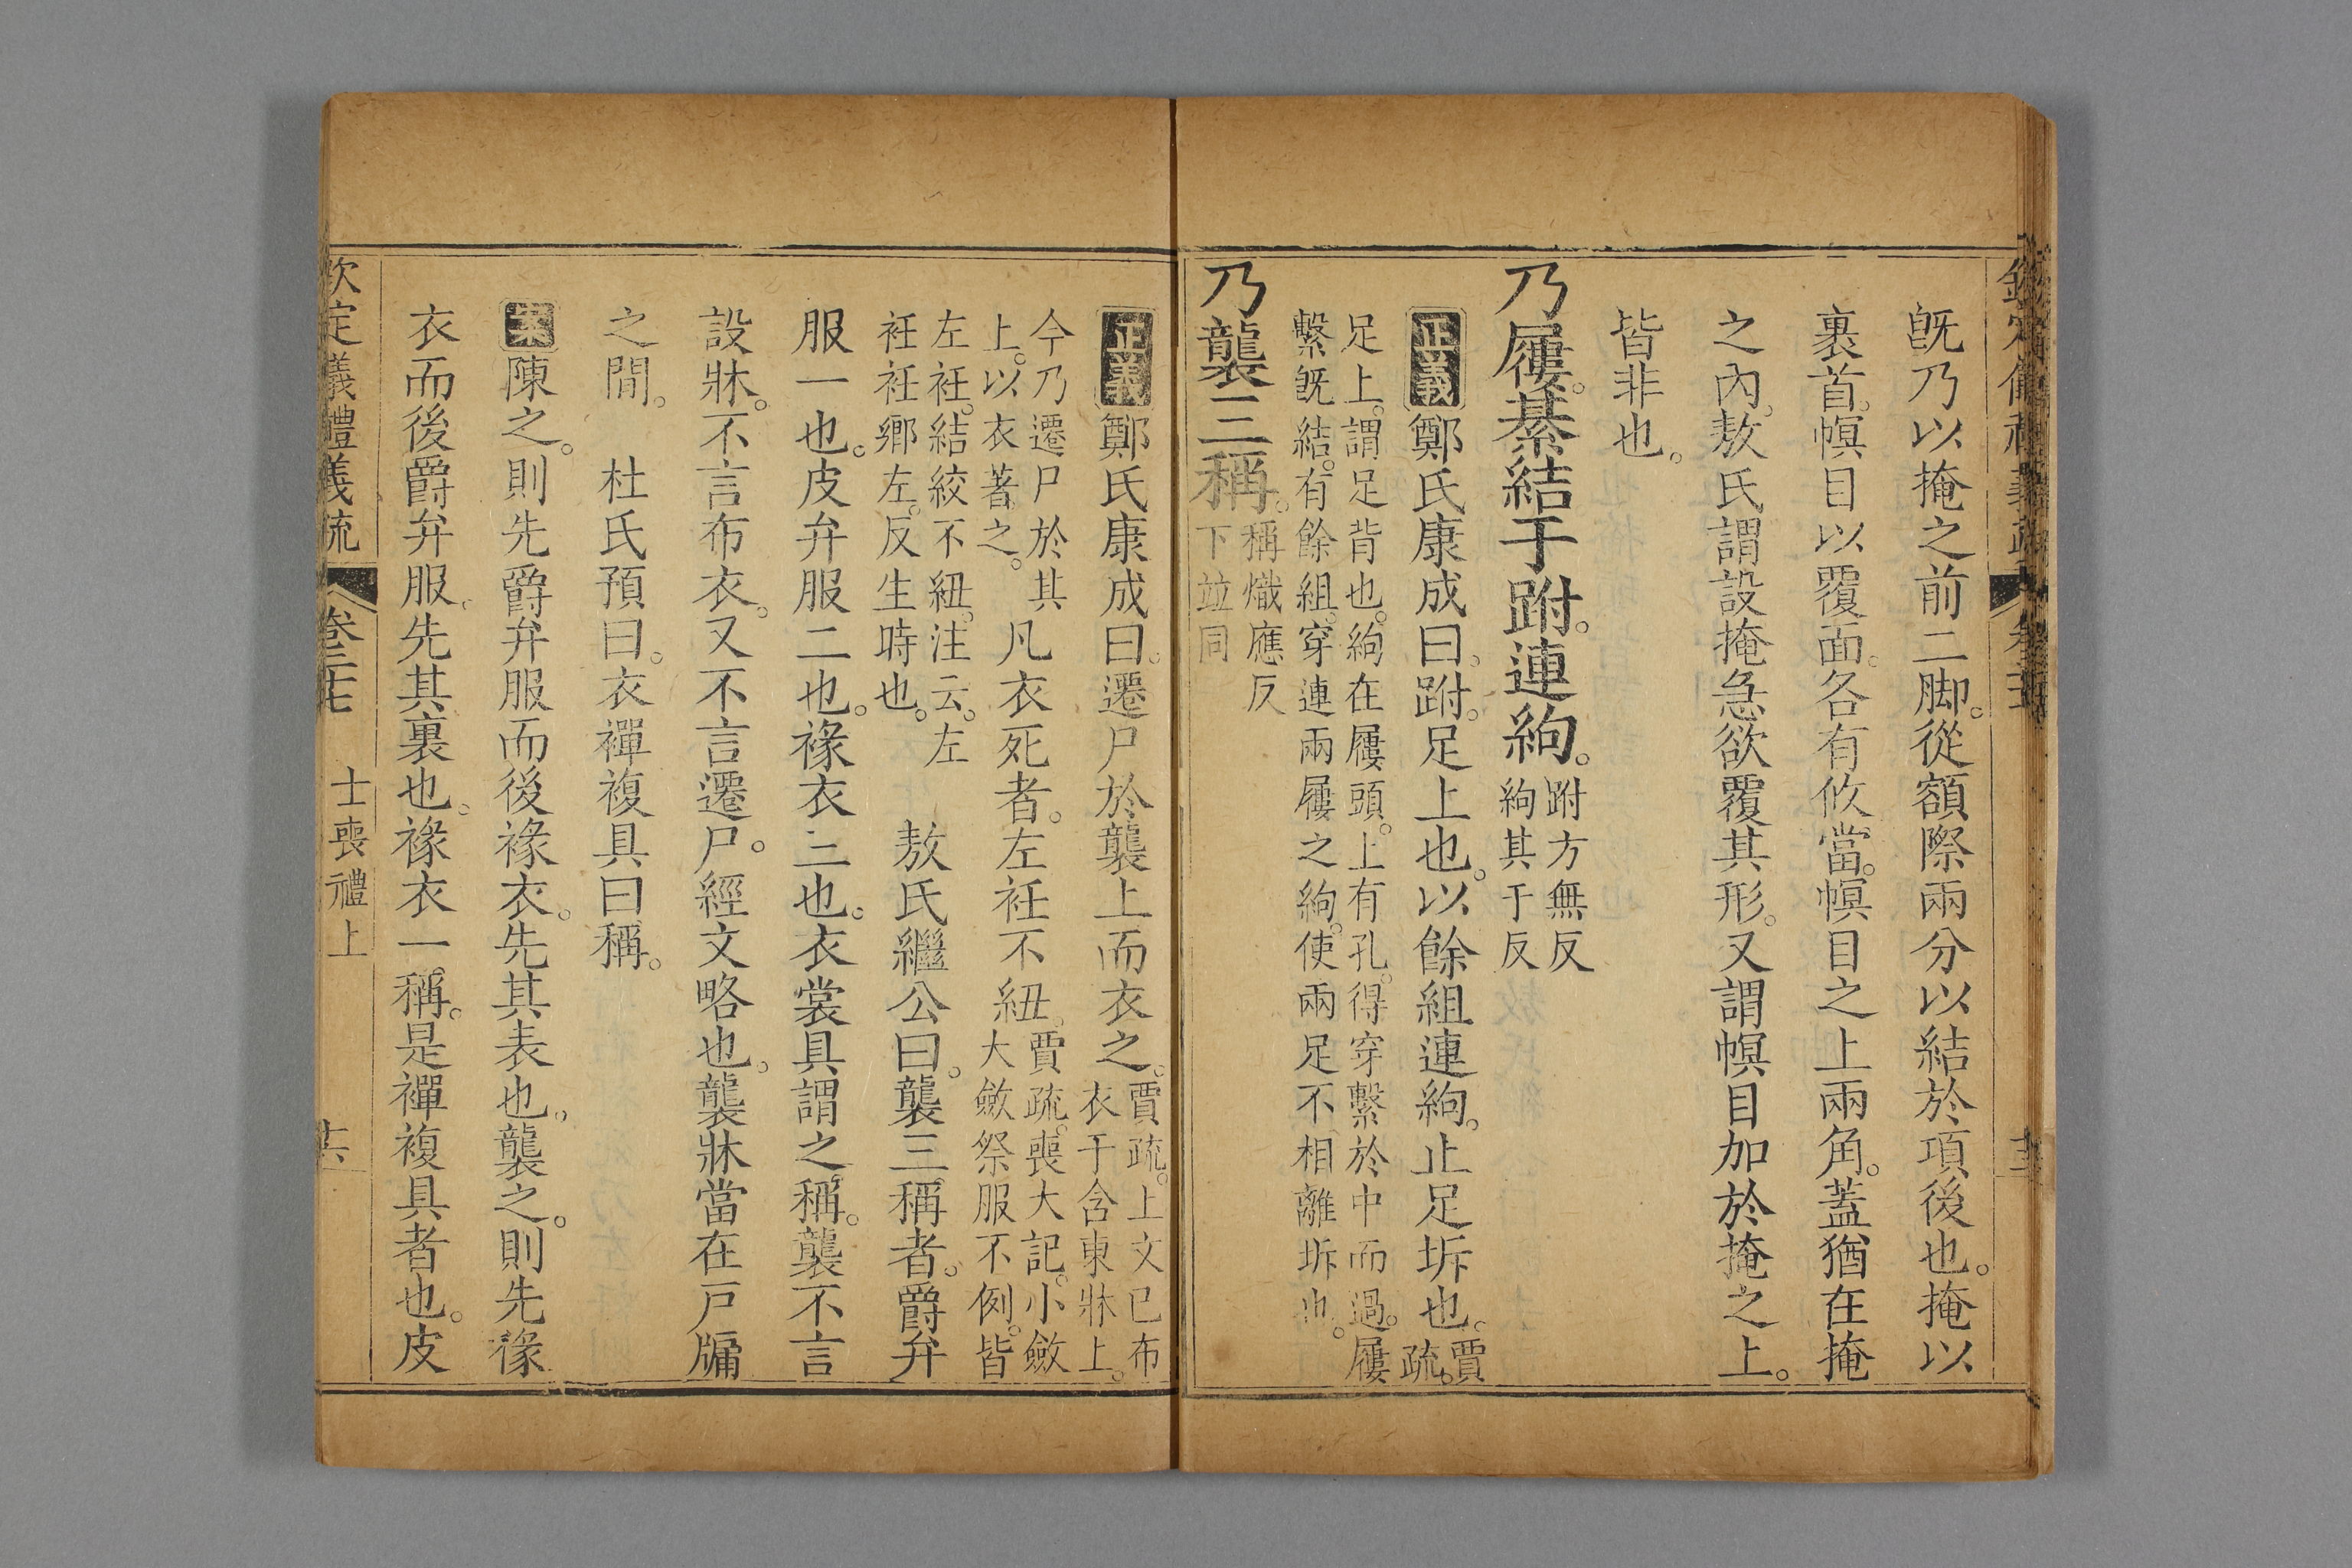 旣乃以掩之前二脚。從額際兩分以結於項後也。掩以
裹首。幎目以覆面。各有攸當。幎目之上兩角。蓋猶在掩
之內。敖氏謂設掩急欲覆其形。又謂幎目加於掩之上。
皆非也。
乃屨。綦結于跗。連絇。
跗方無反
絇其于反
正義鄭氏康成曰。跗。足上也。以餘組連絇。止足坼也。
賈
疏。
足上。謂足背也。絇在屨頭。上有孔。得穿繫於中而過。屨
繫旣結。有餘組。穿連兩屨之絇。使兩足不相離坼也。
乃襲三稱。
稱熾應反
下竝同
正義鄭氏康成曰。遷尸於襲上而衣之。
賈疏。上文已布
衣于含東牀上。
今乃遷尸於其
上。以衣著之。
凡衣死者。左衽不紐。
賈疏。喪大記。小斂
大斂祭服不倒。皆
左衽。結絞不紐。注云。左
衽衽鄉左。反生時也。
敖氏繼公曰。襲三稱者。爵弁
服一也。皮弁服二也。褖衣三也。衣裳具謂之稱。襲不言
設牀。不言布衣。又不言遷尸。經文略也。襲牀當在戸牖
之閒。　杜氏預曰。衣襌複具曰稱。
案陳之。則先爵弁服而後褖衣。先其表也。襲之。則先褖
衣而後爵弁服。先其裏也。褖衣一稱。是襌複具者也。皮
欽定儀禮義疏
卷三十七
士喪禮上